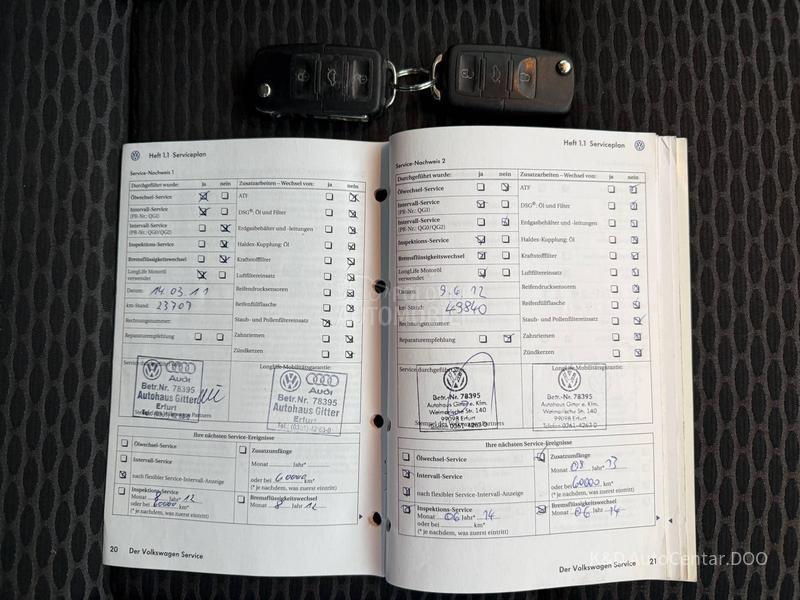 Heft 1.1 Serviceplan
Service-Nachweis 1
Durchgeführt wurde: ja nein Zusatzarbeiten – Wechsel von: ja nein
Ölwechsel-Service ATF
Intervall-Service
(PR-Nr.: QG1) DSG®: Öl und Filter
Intervall-Service
(PR-Nr.: QG0/QG2) Erdgasbehälter und -leitungen
Inspektions-Service Haldex-Kupplung: Öl
Bremsflüssigkeitswechsel Kraftstofffilter
LongLife Motoröl
verwendet Luftfiltereinsatz
Datum: 14.03.11 Reifendrucksensoren
km-Stand: 23707 Reifenfüllflasche
Rechnungsnummer: Staub- und Pollenfiltereinsatz
Reparaturempfehlung Zahnriemen
Zündkerzen
Audi
Betr.Nr. 78395
Autohaus Gitter
Erfurt
Audi
Betr.Nr. 78395
Autohaus Gitter
Erfurt
Ihre nächsten Service-Ereignisse
Ölwechsel-Service
Intervall-Service
nach flexibler Service-Intervall-Anzeige
Inspektions-Service
Monat 8 Jahr* 12
oder bei 60000 km*
(* je nachdem, was zuerst eintritt)
Zusatzumfänge
Monat Jahr*
oder bei 60000 km*
(* je nachdem, was zuerst eintritt)
Bremsflüssigkeitswechsel
Monat 8 Jahr 12
20 Der Volkswagen Service
Heft 1.1 Serviceplan
Service-Nachweis 2
Durchgeführt wurde: ja nein Zusatzarbeiten – Wechsel von: ja nein
Ölwechsel-Service ATF
Intervall-Service
(PR-Nr.: QG1) DSG®: Öl und Filter
Intervall-Service
(PR-Nr.: QG0/QG2) Erdgasbehälter und -leitungen
Inspektions-Service Haldex-Kupplung: Öl
Bremsflüssigkeitswechsel Kraftstofffilter
LongLife Motoröl
verwendet Luftfiltereinsatz
Datum: 9.6.12 Reifendrucksensoren
km-Stand: 49840 Reifenfüllflasche
Rechnungsnummer: Staub- und Pollenfiltereinsatz
Reparaturempfehlung Zahnriemen
Zündkerzen
Service durchgeführt LongLife Mobilitätsgarantie:
Betr.-Nr. 78395
Autohaus Gitter e. Kfm.
Weimarische Str. 140
99098 Erfurt
Telefon 0361-4263-0
Betr.-Nr. 78395
Autohaus Gitter e. Kfm.
Weimarische Str. 140
99098 Erfurt
Telefon 0361-4263-0
Ihre nächsten Service-Ereignisse
Ölwechsel-Service
Intervall-Service
nach flexibler Service-Intervall-Anzeige
Inspektions-Service
Monat 06 Jahr* 14
oder bei km*
(* je nachdem, was zuerst eintritt)
Zusatzumfänge
Monat 08 Jahr* 13
oder bei 60000 km*
(* je nachdem, was zuerst eintritt)
Bremsflüssigkeitswechsel
Monat 06 Jahr 14
Der Volkswagen Service 21
K&D AutoCentar.DOO